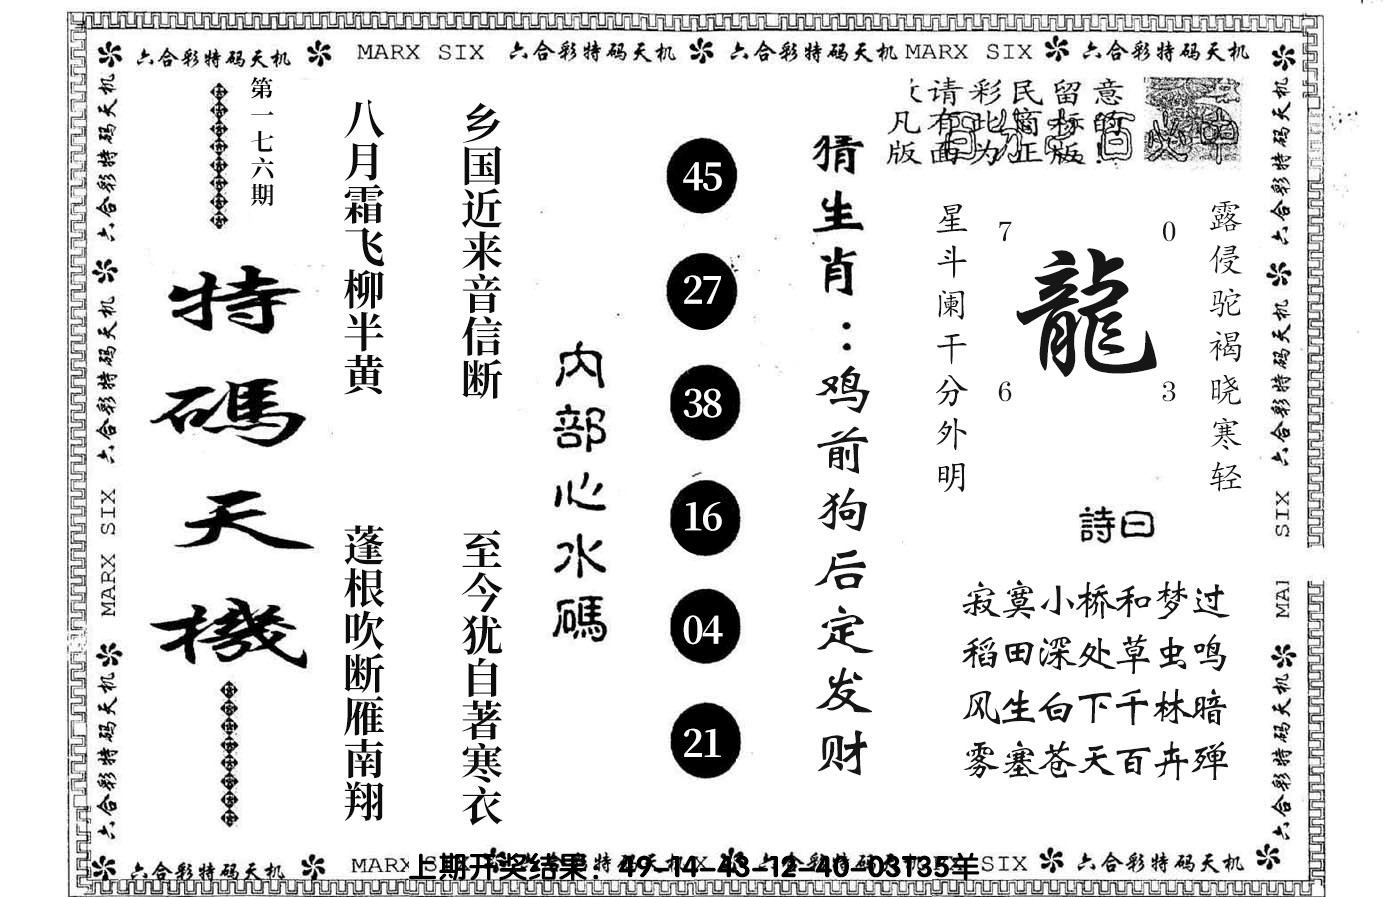 六合彩特码天机 MARX SIX 六合彩特码天机 六合彩特码天机 MARX SIX 六合彩特码天机
六合彩特码天机
六合彩特码天机
MARX SIX
六合彩特码天机
第一七六期
特碼天機
八月霜飞柳半黄
蓬根吹断雁南翔
乡国近来音信断
至今犹自著寒衣
内部心水碼
45
27
38
16
04
21
猜生肖：鸡前狗后定发财
请彩民留意
凡有此窗标的
版面为正版！
星斗阑干分外明
7 0
龍
6 3
露侵驼褐晓寒轻
詩曰
寂寞小桥和梦过
稻田深处草虫鸣
风生白下千林暗
雾塞苍天百卉殚
六合彩特码天机
六合彩特码天机
SIX
MAI
六合彩特码天机
六合彩特码天机 MARX SIX 六合彩特码天机 SIX 六合彩特码天机
上期开奖结果：49-14-43-12-40-03T35羊